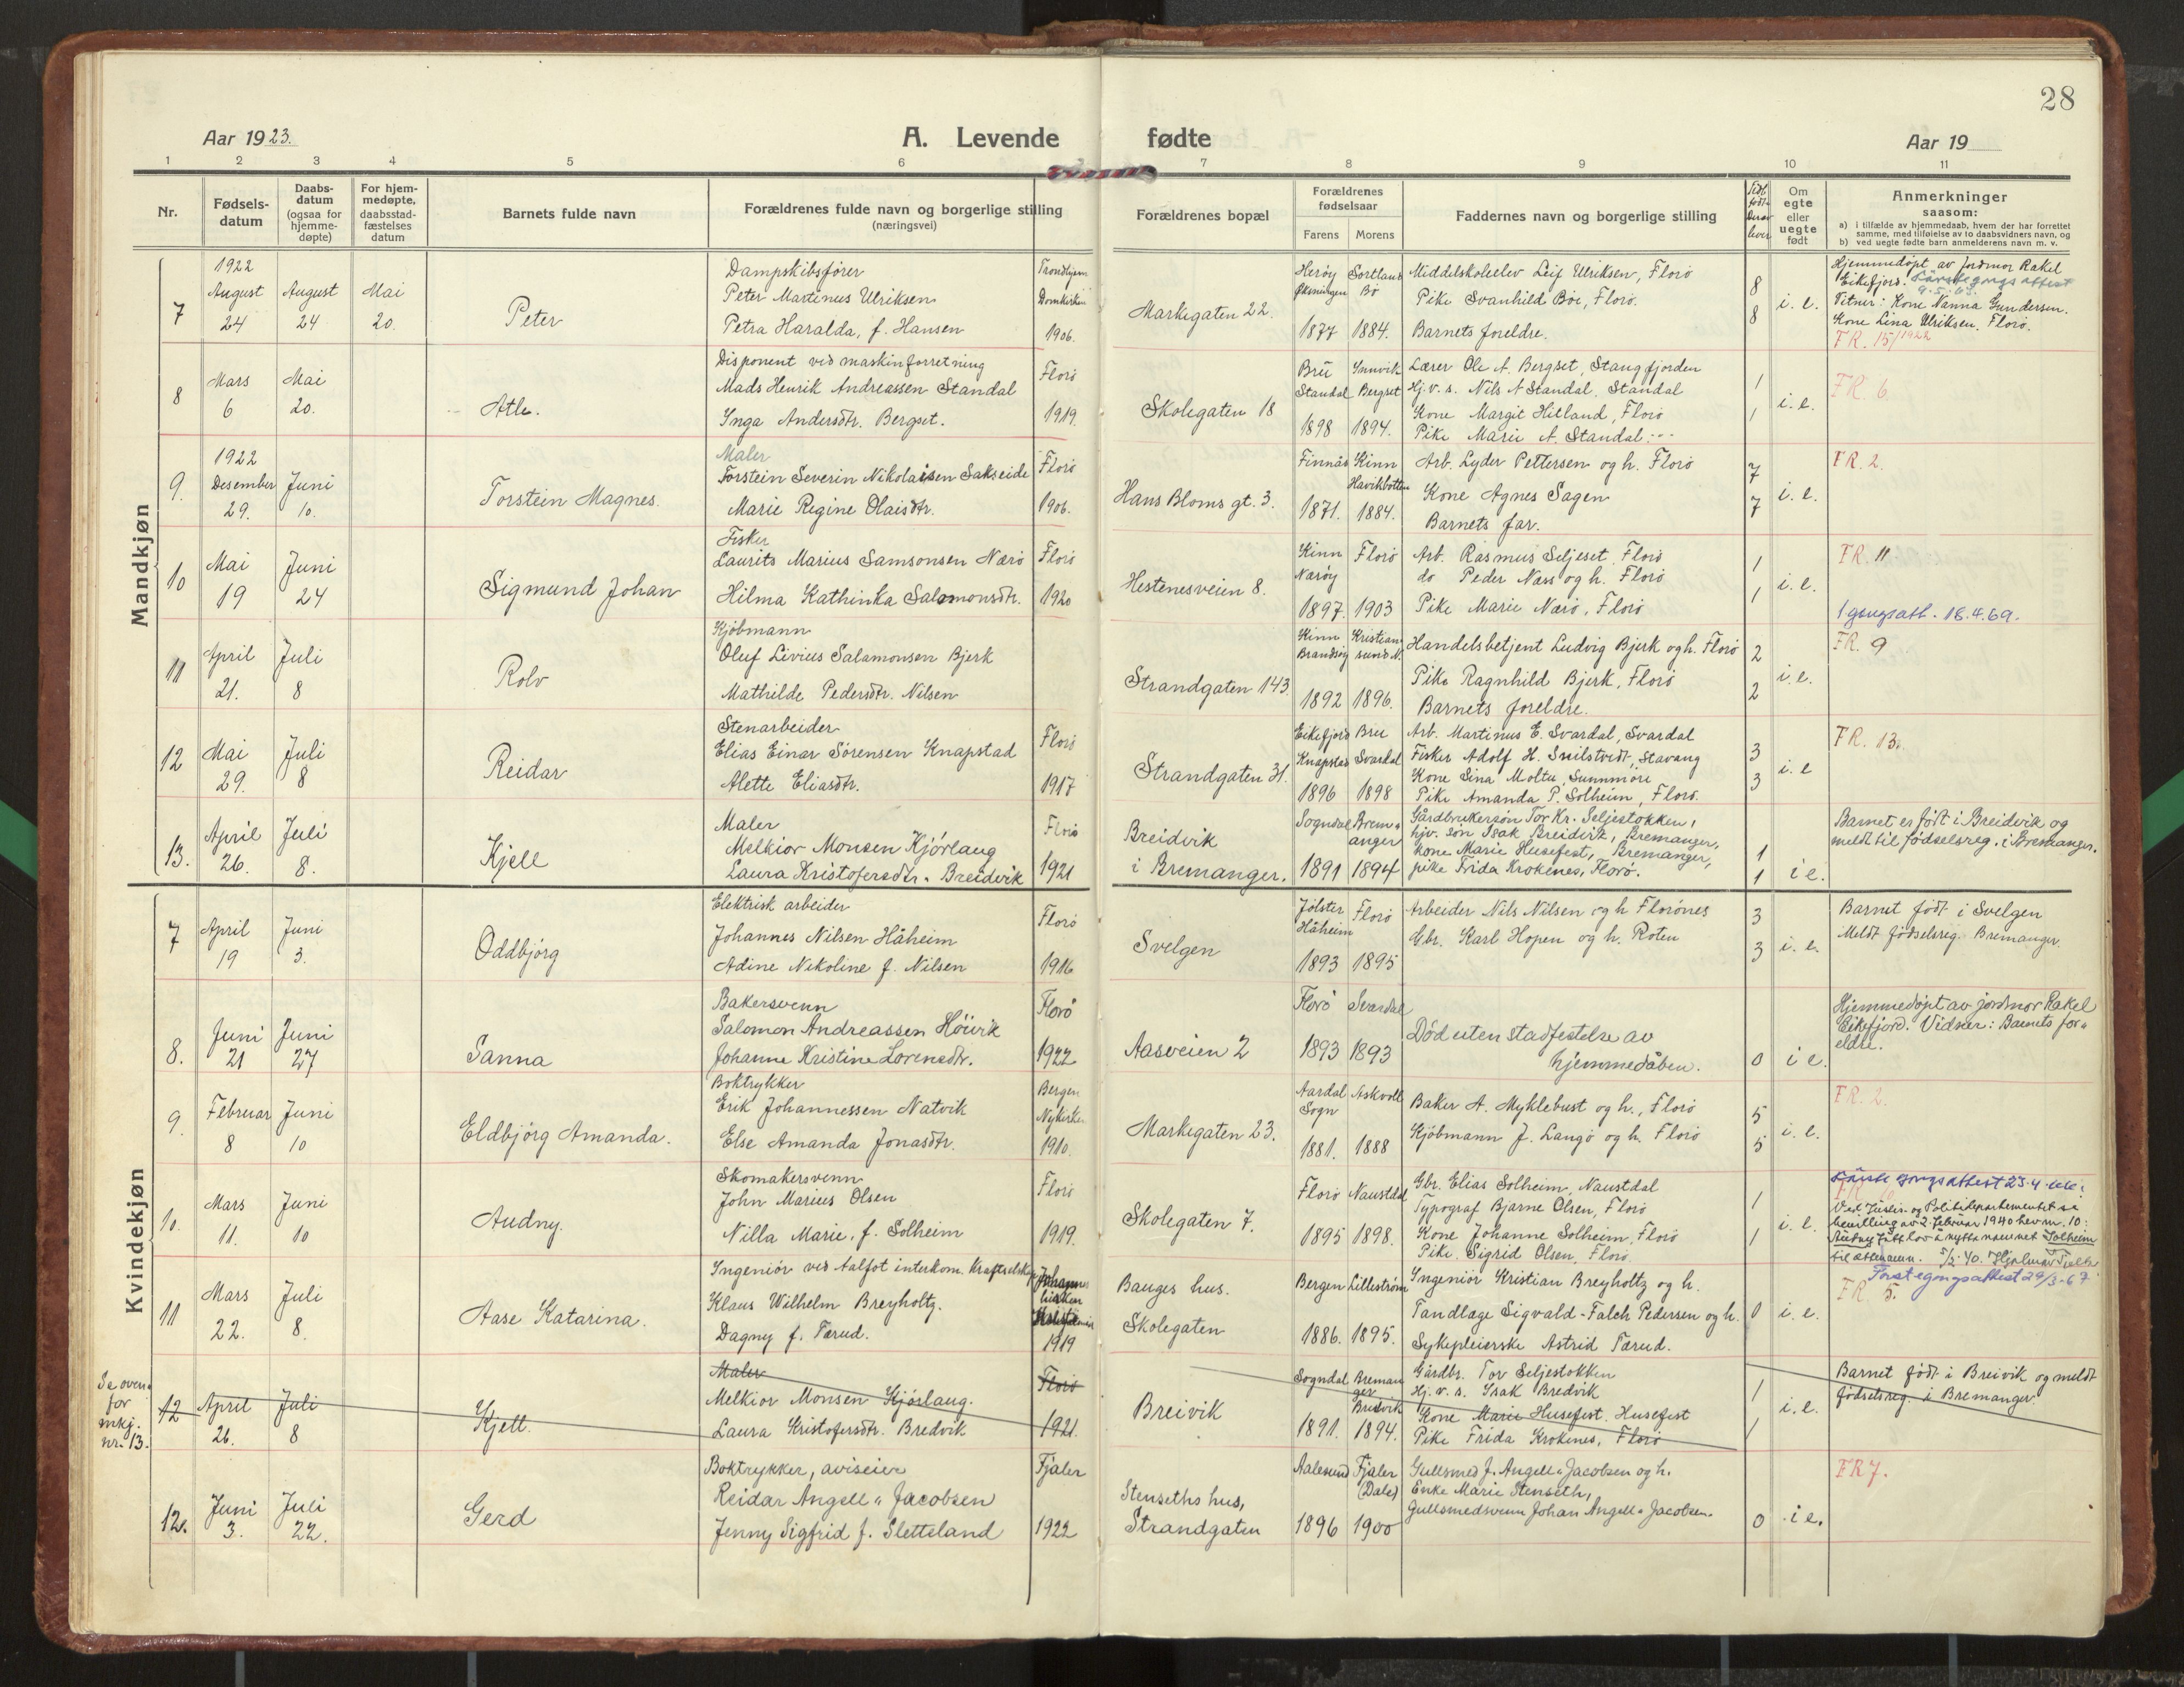 28
Aar 1923.
A. Levende
fødte
Aar 19
1 2 3 4 5 6 7 8 9 10 11
Nr.
Fødsels-
datum
Daabs-
datum
(ogsaa for
hjemme-
døpte)
For hjem-
medøpte,
daabsstad-
fæstelses
datum
Barnets fulde navn
Forældrenes fulde navn og borgerlige stilling
(næringsvei)
Forældrenes bopæl
Forældrenes
fødselsaar
Farens Morens
Faddernes navn og borgerlige stilling
Tidl.
født.
Derav
lever
Om
egte
eller
uegte
født
Anmerkninger
saasom:
a) i tilfælde av hjemmedaab, hvem der har forrettet
samme, med tilføielse av to daabsvidners navn, og
b) ved uegte fødte barn anmelderens navn m. v.
Mandkjøn
7
1922
August
24
August
24
Mai
20.
Peter
Dampskibsfører
Peter Martinus Ulriksen
Petra Haralda, f. Hansen
Trondhjem
Domkirken
1906.
Markegaten 22.
Herøy
Øksningen
1877
Sortland
Bø
1884.
Middelskoleelev Leif Ulriksen, Florø
Pike Svanhild Bøe, Florø.
Barnets foreldre.
8
8
i. e.
Hjemmedøpt av jordmor Rakel
Eikefjord.
Vitner: Kone Nanna Gundersen.
Kone Lina Ulriksen. Florø.
FR. 15/1922
8
Mars
6
Mai
20.
Atle.
Disponent ved maskinforretning
Mads Henrik Andreassen Standal
Inga Andersdtr. Bergset.
Florø
1919.
Skolegaten 18
Bru
Standal
1898
Innvik
Bergset
1894.
Lærer Ole A. Bergset, Stangfjorden
Hj. v. s. Nils A Standal, Standal
Kone Margit Hilland, Florø
Pike Marie A. Standal
1
1
i. e.
FR. 6.
9.
1922
Desember
29.
Juni
10.
Torstein Magnes.
Maler
Torstein Severin Nikolaisen Sakseide
Marie Regine Olaisdtr.
Florø
1906.
Hans Bloms gt. 3.
Finnås
1871.
Kinn
Havikbotten
1884.
Arb. Lyder Pettersen og h. Florø
Kone Agnes Sagen
Barnets far.
7
7
i. e.
FR. 2.
10
Mai
19
Juni
24
Sigmund Johan
Fisker
Laurits Marius Samsonsen Nærø
Hilma Kathinka Salomonsdtr.
Florø
1920
Hestenesveien 8.
Kinn
Nærøy
1897.
Florø
1903
Arb. Rasmus Seljeset, Florø
do Peder Næss og h. Florø
Pike Marie Nærø, Florø
1
1
i. e.
FR. 11
1 gongsatt. 18.4.69.
11
April
21.
Juli
8
Rolv
Kjøbmann
Oluf Livius Salamonsen Bjerk
Mathilde Pedersdtr. Nilsen
Strandgaten 143.
Kinn
Brandsøy
1892
Kristian-
sund N.
1896.
Handelsbetjent Ludvig Bjerk og h. Florø
Pike Ragnhild Bjerk, Florø
Barnets foreldre.
2
2
i. e.
FR. 9
12
Mai
29.
Juli
8
Reidar
Stenarbeider
Elias Einar Sørensen Knapstad
Alette Eliasdtr.
Florø
1917
Strandgaten 31.
Eikefjord
Knapstad
1896
Bru
Svardal
1898
Arb. Martinus E. Svardal, Svardal
Fisker Adolf H. Snilstvedt, Stavang
Kone Lina Moltu, Sunnmøre
Pike Amanda P. Solheim, Florø.
3
3
i. e
FR. 13.
13.
April
26.
Juli
8.
Kjell
Maler
Melkior Monsen Kjørlaug
Laura Kristofersdtr. Breidvik
Florø
1921
Breidvik
i Bremanger.
Sogndal
1891
Brem-
anger
1894
Gårdbrukersøn Tor Kr. Seljestokken,
hjv. søn Isak Breidvik, Bremanger,
kone Marie Husefest, Bremanger,
pike Frida Krokenes, Florø.
1
1
i e.
Barnet er født i Breidvik og
meldt til fødselsreg. i Bremanger.
Kvindekjøn
7
April
19
Juni
3.
Oddbjørg
Elektrisk arbeider
Johannes Nilsen Håheim
Adine Nikoline f. Nilsen
Florø
1916
Svelgen
Jølster
Håheim
1893
Florø
1895
Arbeider Nils Nilsen og h Florønes
Gbr. Karl Hopen og h. Roten
3
3
i. e.
Barnet født i Svelgen
Meldt fødselsreg. Bremanger.
8.
Juni
21
Juni
27
Sanna
Bakersvenn
Salomon Andreassen Høivik
Johanne Kristine Lorensdtr.
Florø
1922
Aasveien 2
Florø
1893
Svardal
1893
Død uten stadfestelse av
hjemmedåben.
0
i e.
Hjemmedøpt av jordmor Rakel
Eikefjord. Vidner: Barnets for-
eldre.
9.
Februar
8
Juni
10
Eldbjørg Amanda.
Boktrykker
Erik Johannessen Natvik
Else Amanda Jonasdtr.
Bergen
Nykirke
1910.
Markegaten 23.
Aardal
Sogn
1881.
Askvoll
1888
Baker A. Myklebust og h., Florø
Kjøbmann J. Langø og h. Florø
5
5
i. e.
FR. 2.
10.
Mars
11.
Juni
10
Audny.
Skomakersvenn
John Marius Olsen
Nilla Marie, f. Solheim
Florø
1919.
Skolegaten 7.
Florø
1895
Naustdal
1898.
Gbr. Elias Solheim, Naustdal
Typograf Bjarne Olsen, Florø
Kone Johanne Solheim, Florø
Pike Sigrid Olsen, Florø.
1
1
i. e.
Ved Justis- og Politidepartementet si
bevilling av 2. februar 1940 hev nr. 10:
Audny fått lov å nytta namnet Solheim
til ættenamn. 5/2 40.
11
Mars
22.
Juli
8.
Aase Katarina.
Ingeniør ved Aalfot interkom. Kraftselskap
Klaus Wilhelm Breyholtz.
Dagny f. Tærud.
Johannes
kirken
1919
Bauges hus.
Skolegaten
Bergen
1886.
Lillestrøm
1895.
Ingeniør Kristian Breyholtz og h.
Tandlæge Sigvald-Falch Pedersen og h.
Sykepleierske Astrid Tærud.
0
i. e.
Førstegongsattest 29/3-67
FR. 5.
Se oven-
for
mkj.
nr. 13.
12
April
26.
Juli
8
Kjell.
Maler
Melkior Monsen Kjørlaug.
Laura Kristofersdtr. Bredvik
Florø
1921.
Breivik
Sogndal
1891.
Breman
ger
Bredvik
1894.
Gårdbr. Tor Seljestokken
Hj. v. s. Isak Bredvik
Kone Marie Husefest. Husefest
Pike Frida Krokenes, Florø
1
1
i. e.
Barnet født i Breivik og meldt
fødselsreg. i Bremanger.
12.
Juni
3.
Juli
22.
Gerd
Boktrykker, aviseier
Reidar Angell-Jacobsen
Jenny Sigfrid f. Sletteland
Fjaler
1922
Stenseths hus,
Strandgaten
Aalesund
1896
Fjaler
(Dale)
1900
Gullsmed J. Angell-Jacobsen og h.
Enke Marie Stenseth,
Gullsmedsvenn Johan Angell-Jacobsen.
0
i e.
FR 7.